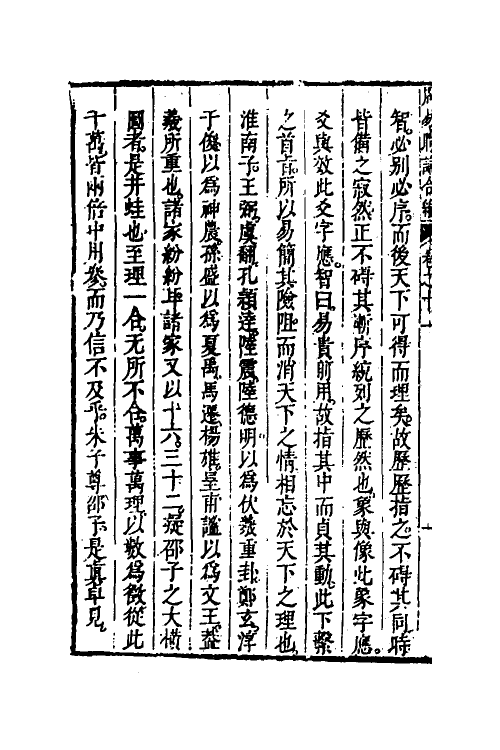 周易時論合編
智必別必序而後天下可得而理矣故歷歷指之不碍其同時
皆備之寂然正不碍其漸序統列之歷然也象與像此象字應
爻與效此爻字應智曰易貴前用故指其中而貞其動此下繫
之首言所以易簡其險阻而消天下之情相忘於天下之理也
淮南子王弼虞翻孔穎達陸震陸德明以為伏羲重卦鄭玄淳
于俊以為神農孫盛以為夏禹馬遷楊雄皇甫謐以為文王蓋
羲所重也諸家紛紛毕諸家又以十六三十二疑邵子之大橫
圖者是井蛙也至理一合无所不合萬事萬理以數為徵從此
千萬皆兩倍中用參而乃信不及乎朱子尊邵子是真卓見